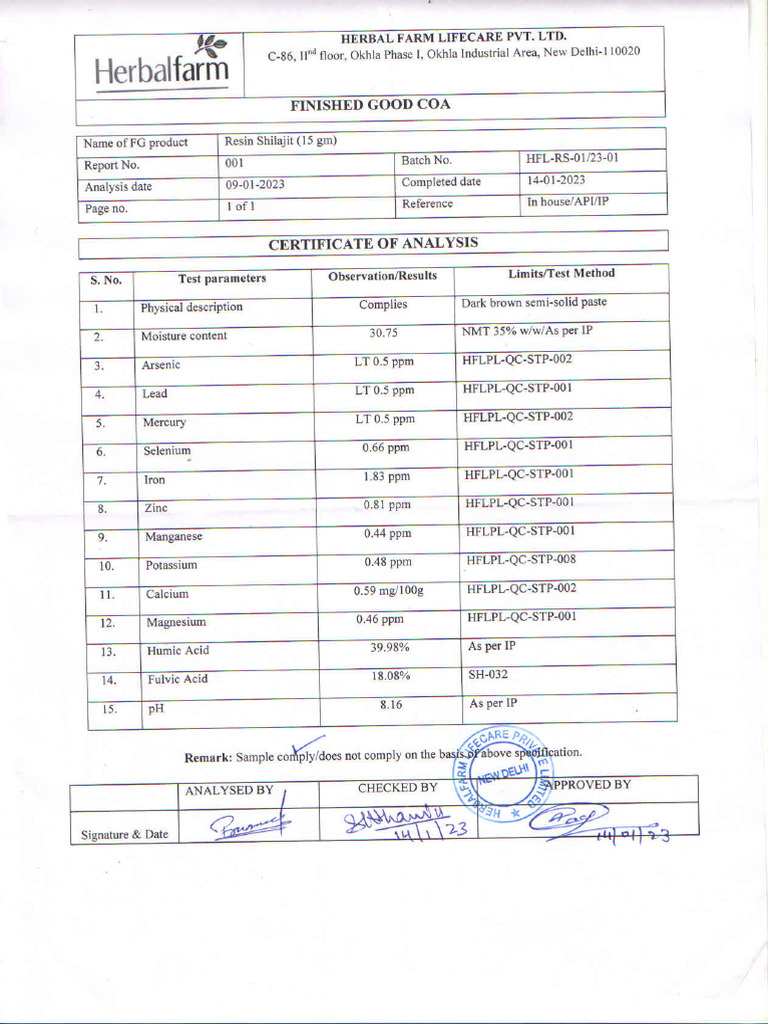 Herbalfarm
HERBAL FARM LIFECARE PVT. LTD.
C-86, IInd floor, Okhla Phase I, Okhla Industrial Area, New Delhi-110020
FINISHED GOOD COA
Name of FG product Resin Shilajit (15 gm)
Report No. 001 Batch No. HFL-RS-01/23-01
Analysis date 09-01-2023 Completed date 14-01-2023
Page no. 1 of 1 Reference In house/API/IP
CERTIFICATE OF ANALYSIS
S. No. Test parameters Observation/Results Limits/Test Method
1. Physical description Complies Dark brown semi-solid paste
2. Moisture content 30.75 NMT 35% w/w/As per IP
3. Arsenic LT 0.5 ppm HFLPL-QC-STP-002
4. Lead LT 0.5 ppm HFLPL-QC-STP-001
5. Mercury LT 0.5 ppm HFLPL-QC-STP-002
6. Selenium 0.66 ppm HFLPL-QC-STP-001
7. Iron 1.83 ppm HFLPL-QC-STP-001
8. Zinc 0.81 ppm HFLPL-QC-STP-001
9. Manganese 0.44 ppm HFLPL-QC-STP-001
10. Potassium 0.48 ppm HFLPL-QC-STP-008
11. Calcium 0.59 mg/100g HFLPL-QC-STP-002
12. Magnesium 0.46 ppm HFLPL-QC-STP-001
13. Humic Acid 39.98% As per IP
14. Fulvic Acid 18.08% SH-032
15. pH 8.16 As per IP
Remark: Sample comply/does not comply on the basis of above specification.
HERBALFARM LIFECARE PRIVATE LIMITED
NEW DELHI
ANALYSED BY CHECKED BY APPROVED BY
Signature & Date
14/1/23 14/01/23